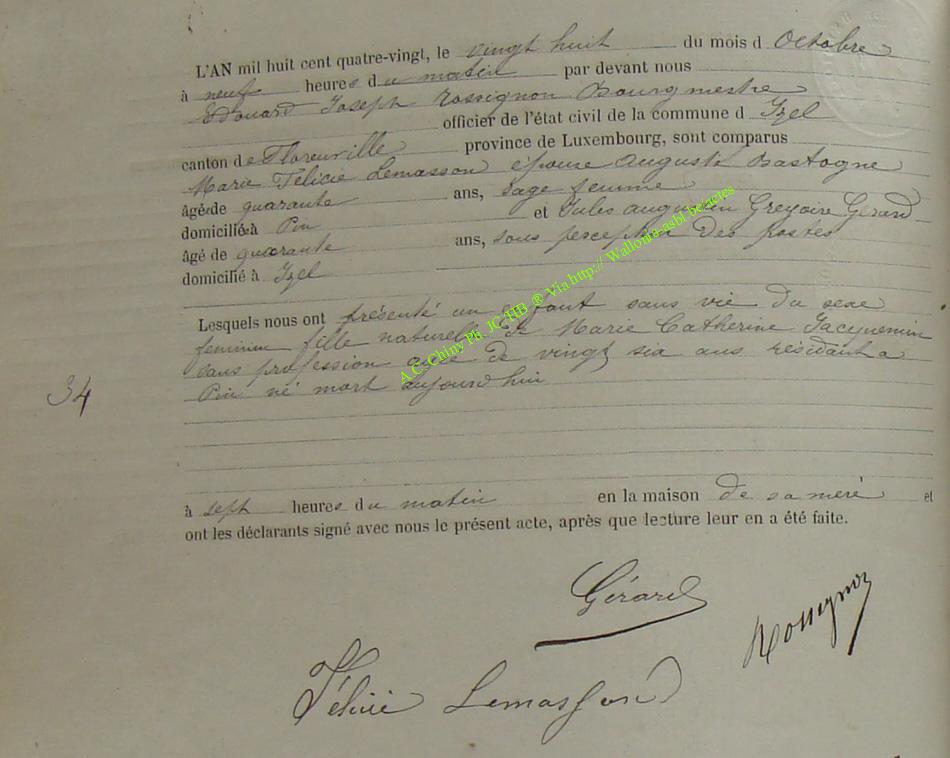 L'AN mil huit cent quatre-vingt, le vingt huit du mois d Octobre
à neuf heures du matin par devant nous
Edouard Joseph Rossignon Bourgmestre
officier de l'état civil de la commune d Izel
canton de Florenville province de Luxembourg, sont comparus
Marie Félicie Lemasson épouse Auguste Bastogne
âgé de quarante ans, sage femme
domicilié à Pin et Jules augustin Gregoire Gérard
âgé de quarante ans, sous percepteur des postes
domicilié à Izel
Lesquels nous ont présenté un enfant sans vie du sexe
feminin fille naturelle de Marie Catherine Jacquemin
sans profession agée de vingt six ans résidant a
Pin né mort aujourd'hui
34
à sept heures du matin en la maison de sa meré et
ont les déclarants signé avec nous le présent acte, après que lecture leur en a été faite.
Gérard
Rossignon
Félicie Lemasson
A.C. Chiny Ph. JC HB ® Via http:// Wallonia-asbl.be/actes